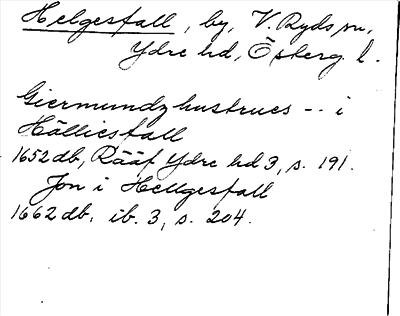 Helgesfall, by, V. Ryds sn,
Ydre hd, Österg. l.
Giermundz hustrues -- i
Hälliesfall
1652 db, Rääf Ydre hd 3, s. 191.
Jon i Hellgesfall
1662 db. ib. 3, s. 204.